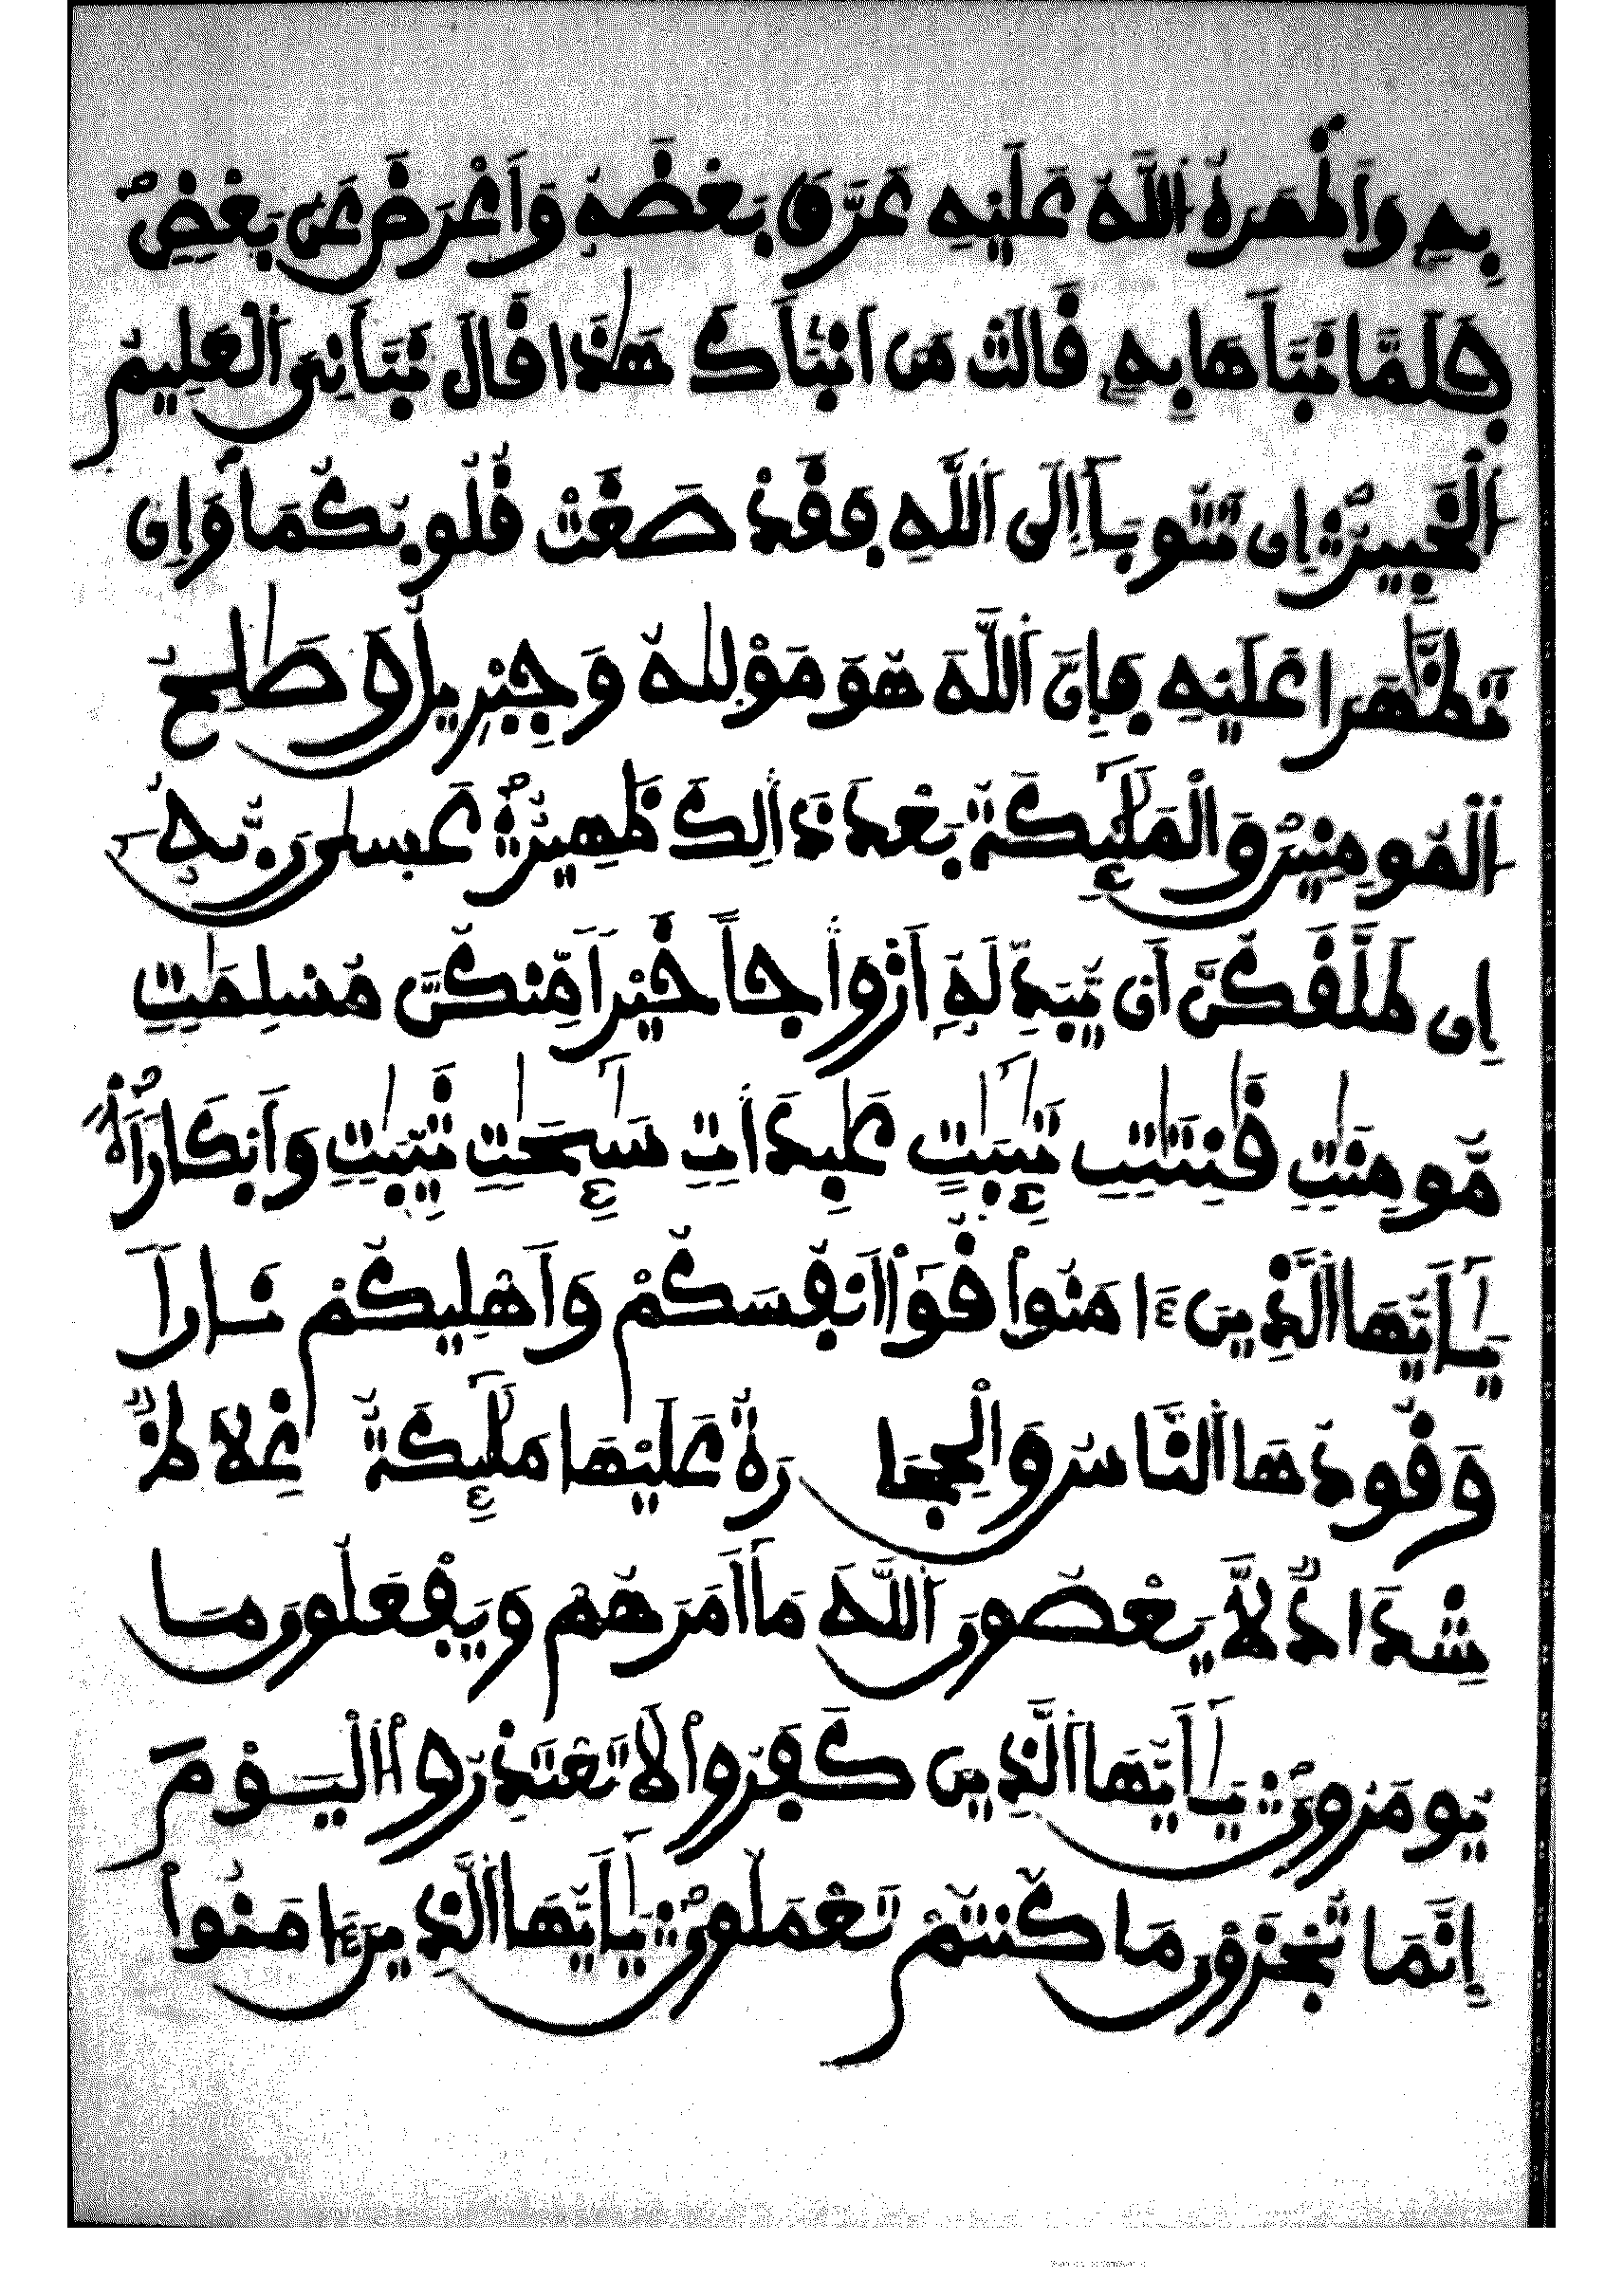 بِهِۦ وَأَظْهَرَهُ اَللَّهُ عَلَيْهِ عَرَّفَ بَعْضَهُۥ وَأَعْرَضَ عَنۢ بَعْضٍ
فَلَمَّا نَبَّأَهَا بِهِۦ قَالَتْ مَنَ اَنۢبَأَكَ هَٰذَا قَالَ نَبَّأَنِيَ اَلْعَلِيمُ
اَلْخَبِيرُ إِن تَتُوبَآ إِلَى اَللَّهِ فَقَدْ صَغَتْ قُلُوبُكُمَا وَإِن
تَظَّٰهَرَا عَلَيْهِ فَإِنَّ اَللَّهَ هُوَ مَوْلَىٰهُ وَجِبْرِيلُ وَصَٰلِحُ
اَلْمُومِنِينَ وَالْمَلَٰٓئِكَةُ بَعْدَ ذَالِكَ ظَهِيرٌ عَسَىٰ رَبُّهُۥٓ
إِن طَلَّقَكُنَّ أَنْ يُّبَدِّلَهُۥٓ أَزْوَاجاً خَيْراً مِّنكُنَّ مُسْلِمَٰتٍ
مُّومِنَٰتٍ قَٰنِتَٰتٍ تَٰٓئِبَٰتٍ عَٰبِدَاتٍ سَٰٓئِحَٰتٍ ثَيِّبَٰتٍ وَأَبْكَاراً
يَٰٓأَيُّهَا اَلَّذِينَ ءَامَنُواْ قُوٓاْ أَنفُسَكُمْ وَأَهْلِيكُمْ نَاراً
وَقُودُهَا اَلنَّاسُ وَالْحِجَارَةُ عَلَيْهَا مَلَٰٓئِكَةٌ غِلَاظٌ
شِدَادٌ لَّا يَعْصُونَ اَللَّهَ مَآ أَمَرَهُمْ وَيَفْعَلُونَ مَا
يُومَرُونَ يَٰٓأَيُّهَا اَلَّذِينَ كَفَرُواْ لَا تَعْتَذِرُواْ اَلْيَوْمَ
إِنَّمَا تُجْزَوْنَ مَا كُنتُمْ تَعْمَلُونَ يَٰٓأَيُّهَا اَلَّذِينَ ءَامَنُواْ